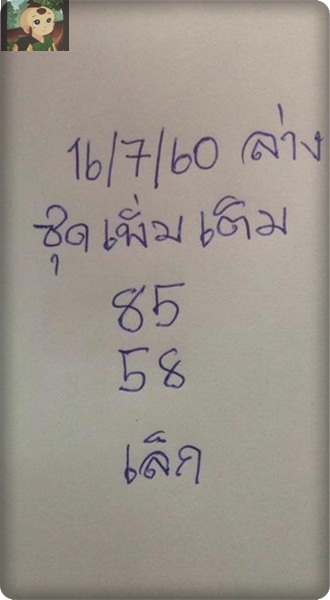 16/7/60 ล่าง
ชุดเพิ่มเติม
85
58
เล็ก